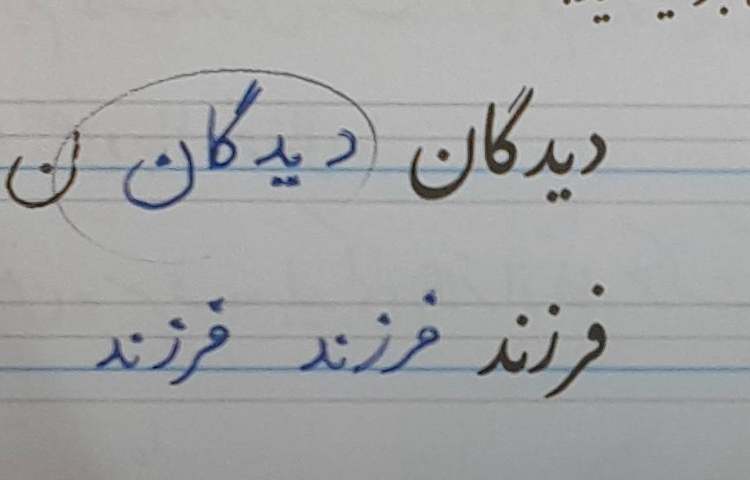 دیدگان دیدگان ن
فرزند فرزند فرزند